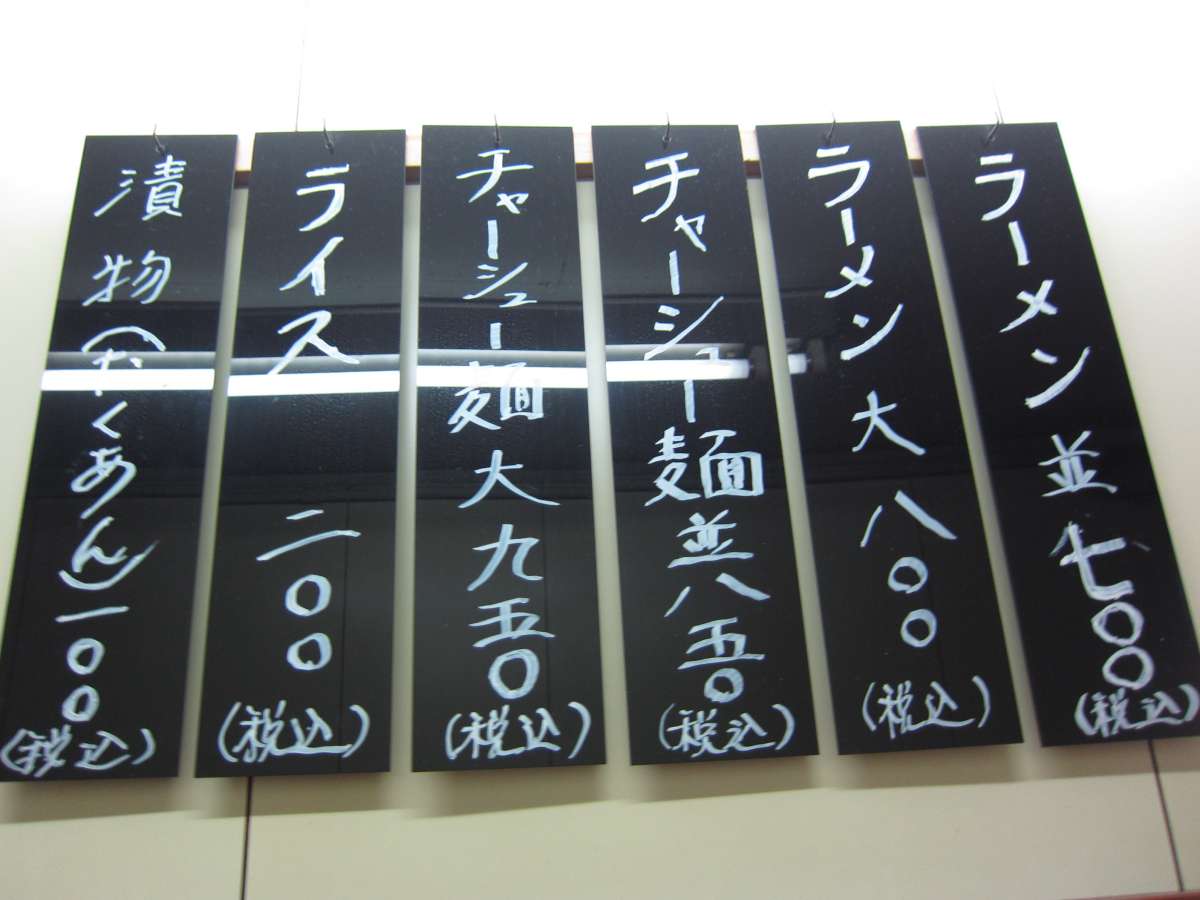 ラーメン並七〇〇(税込)
ラーメン大八〇〇(税込)
チャーシュー麺並八五〇(税込)
チャーシュー麺大九五〇(税込)
ライス二〇〇(税込)
漬物(たくあん)一〇〇(税込)